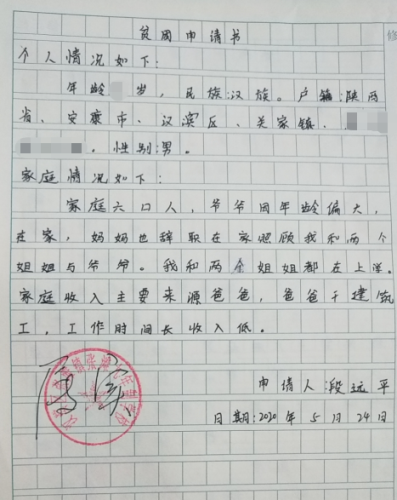 贫困申请书
个人情况如下:
年龄 岁,民族:汉族。户籍:陕西
省、安康市、汉滨区、关家镇、
,性别:男。
家庭情况如下:
家庭六口人,爷爷因年龄偏大,
在家,妈妈也辞职在家照顾我和两个
姐姐与爷爷。我和两个姐姐都在上学。
家庭收入主要来源爸爸,爸爸干建筑
工,工作时间长收入低。
申请人:段远平
日期:2020年5月24日